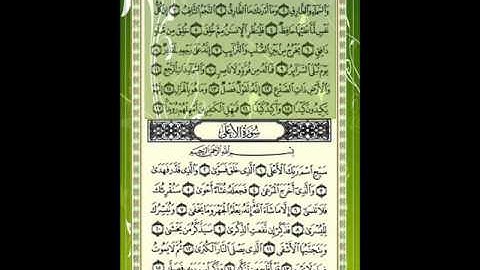 وَالسَّمَاءِ وَالطَّارِقِ ١ وَمَا أَدْرَاكَ مَا الطَّارِقُ ٢ النَّجْمُ الثَّاقِبُ ٣ إِن كُلُّ
نَفْسٍ لَّمَّا عَلَيْهَا حَافِظٌ ٤ فَلْيَنظُرِ الْإِنسَانُ مِمَّ خُلِقَ ٥ خُلِقَ مِن مَّاءٍ
دَافِقٍ ٦ يَخْرُجُ مِن بَيْنِ الصُّلْبِ وَالتَّرَائِبِ ٧ إِنَّهُ عَلَى رَجْعِهِ لَقَادِرٌ ٨
يَوْمَ تُبْلَى السَّرَائِرُ ٩ فَمَا لَهُ مِن قُوَّةٍ وَلَا نَاصِرٍ ١٠ وَالسَّمَاءِ ذَاتِ الرَّجْعِ ١١
وَالْأَرْضِ ذَاتِ الصَّدْعِ ١٢ إِنَّهُ لَقَوْلٌ فَصْلٌ ١٣ وَمَا هُوَ بِالْهَزْلِ ١٤ إِنَّهُمْ
يَكِيدُونَ كَيْدًا ١٥ وَأَكِيدُ كَيْدًا ١٦ فَمَهِّلِ الْكَافِرِينَ أَمْهِلْهُمْ رُوَيْدًا ١٧
سُورَةُ الأَعْلَى
بِسْمِ اللَّهِ الرَّحْمَٰنِ الرَّحِيمِ
سَبِّحِ اسْمَ رَبِّكَ الْأَعْلَى ١ الَّذِي خَلَقَ فَسَوَّى ٢ وَالَّذِي قَدَّرَ فَهَدَى
٣ وَالَّذِي أَخْرَجَ الْمَرْعَى ٤ فَجَعَلَهُ غُثَاءً أَحْوَى ٥ سَنُقْرِئُكَ
فَلَا تَنسَى ٦ إِلَّا مَا شَاءَ اللَّهُ إِنَّهُ يَعْلَمُ الْجَهْرَ وَمَا يَخْفَى ٧ وَنُيَسِّرُكَ
لِلْيُسْرَى ٨ فَذَكِّرْ إِن نَّفَعَتِ الذِّكْرَى ٩ سَيَذَّكَّرُ مَن يَخْشَى ١٠
وَيَتَجَنَّبُهَا الْأَشْقَى ١١ الَّذِي يَصْلَى النَّارَ الْكُبْرَى ١٢ ثُمَّ لَا يَمُوتُ